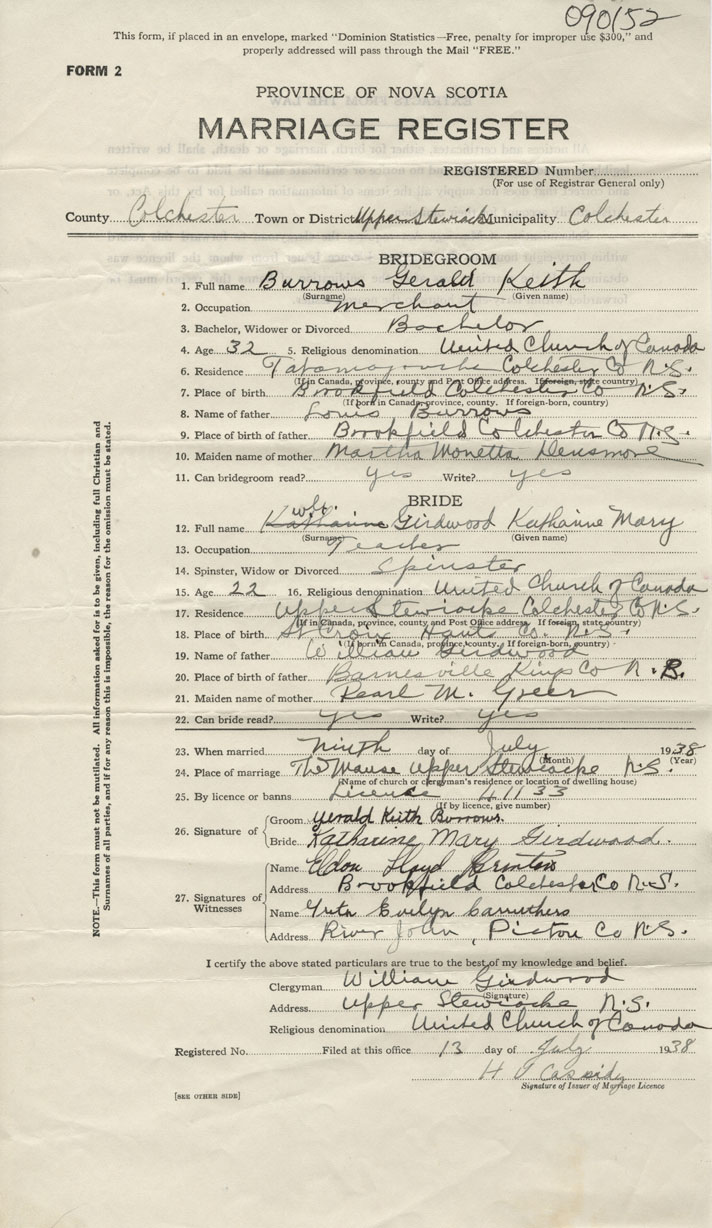 090152
This form, if placed in an envelope, marked "Dominion Statistics—Free, penalty for improper use $300," and
properly addressed will pass through the Mail "FREE."
FORM 2
PROVINCE OF NOVA SCOTIA
MARRIAGE REGISTER
REGISTERED Number
(For use of Registrar General only)
County Colchester Town or District Upper Stewiacke Municipality Colchester
BRIDEGROOM
1. Full name Burrows Gerald Keith
(Surname) (Given name)
2. Occupation merchant
3. Bachelor, Widower or Divorced Bachelor
4. Age 32 5. Religious denomination United Church of Canada
6. Residence Tatamagouche Colchester Co N.S.
(If in Canada, province, county and Post Office address. If foreign, state country)
7. Place of birth Brookfield Colchester Co N.S.
(If born in Canada, province, county. If foreign-born, country)
8. Name of father Louis Burrows
9. Place of birth of father Brookfield Colchester Co N.S.
10. Maiden name of mother Martha Monetta Densmore
11. Can bridegroom read? yes Write? yes
BRIDE
12. Full name Katharine Girdwood Katharine Mary
(Surname) (Given name)
13. Occupation Teacher
14. Spinster, Widow or Divorced Spinster
15. Age 22 16. Religious denomination United Church of Canada
17. Residence Upper Stewiacke Colchester Co N.S.
(If in Canada, province, county and Post Office address. If foreign, state country)
18. Place of birth St Croix Hants Co. N.S.
(If born in Canada, province, county. If foreign-born, country)
19. Name of father William Girdwood
20. Place of birth of father Barnesville Kings Co N.B.
21. Maiden name of mother Pearl M. Greer
22. Can bride read? yes Write? yes
23. When married Ninth day of July 1938
(Month) (Year)
24. Place of marriage The Manse Upper Stewiacke N.S.
(Name of church or clergyman's residence or location of dwelling house)
25. By licence or banns License 41133
(If by licence, give number)
26. Signature of
Groom Gerald Keith Burrows.
Bride Katharine Mary Girdwood.
27. Signatures of Witnesses
Name Eldon Lloyd
Address Brookfield Colchester Co N.S.
Name Evelyn Carruthers
Address River John, Pictou Co N.S.
I certify the above stated particulars are true to the best of my knowledge and belief.
Clergyman William Girdwood
(Signature)
Address Upper Stewiacke N.S.
Religious denomination United Church of Canada
Registered No. Filed at this office 13 day of July 1938
H J Cassidy
Signature of Issuer of Marriage Licence
[SEE OTHER SIDE]
NOTE.—This form must not be mutilated. All information asked for is to be given, including full Christian and
Surnames of all parties, and if for any reason this is impossible, the reason for the omission must be stated.